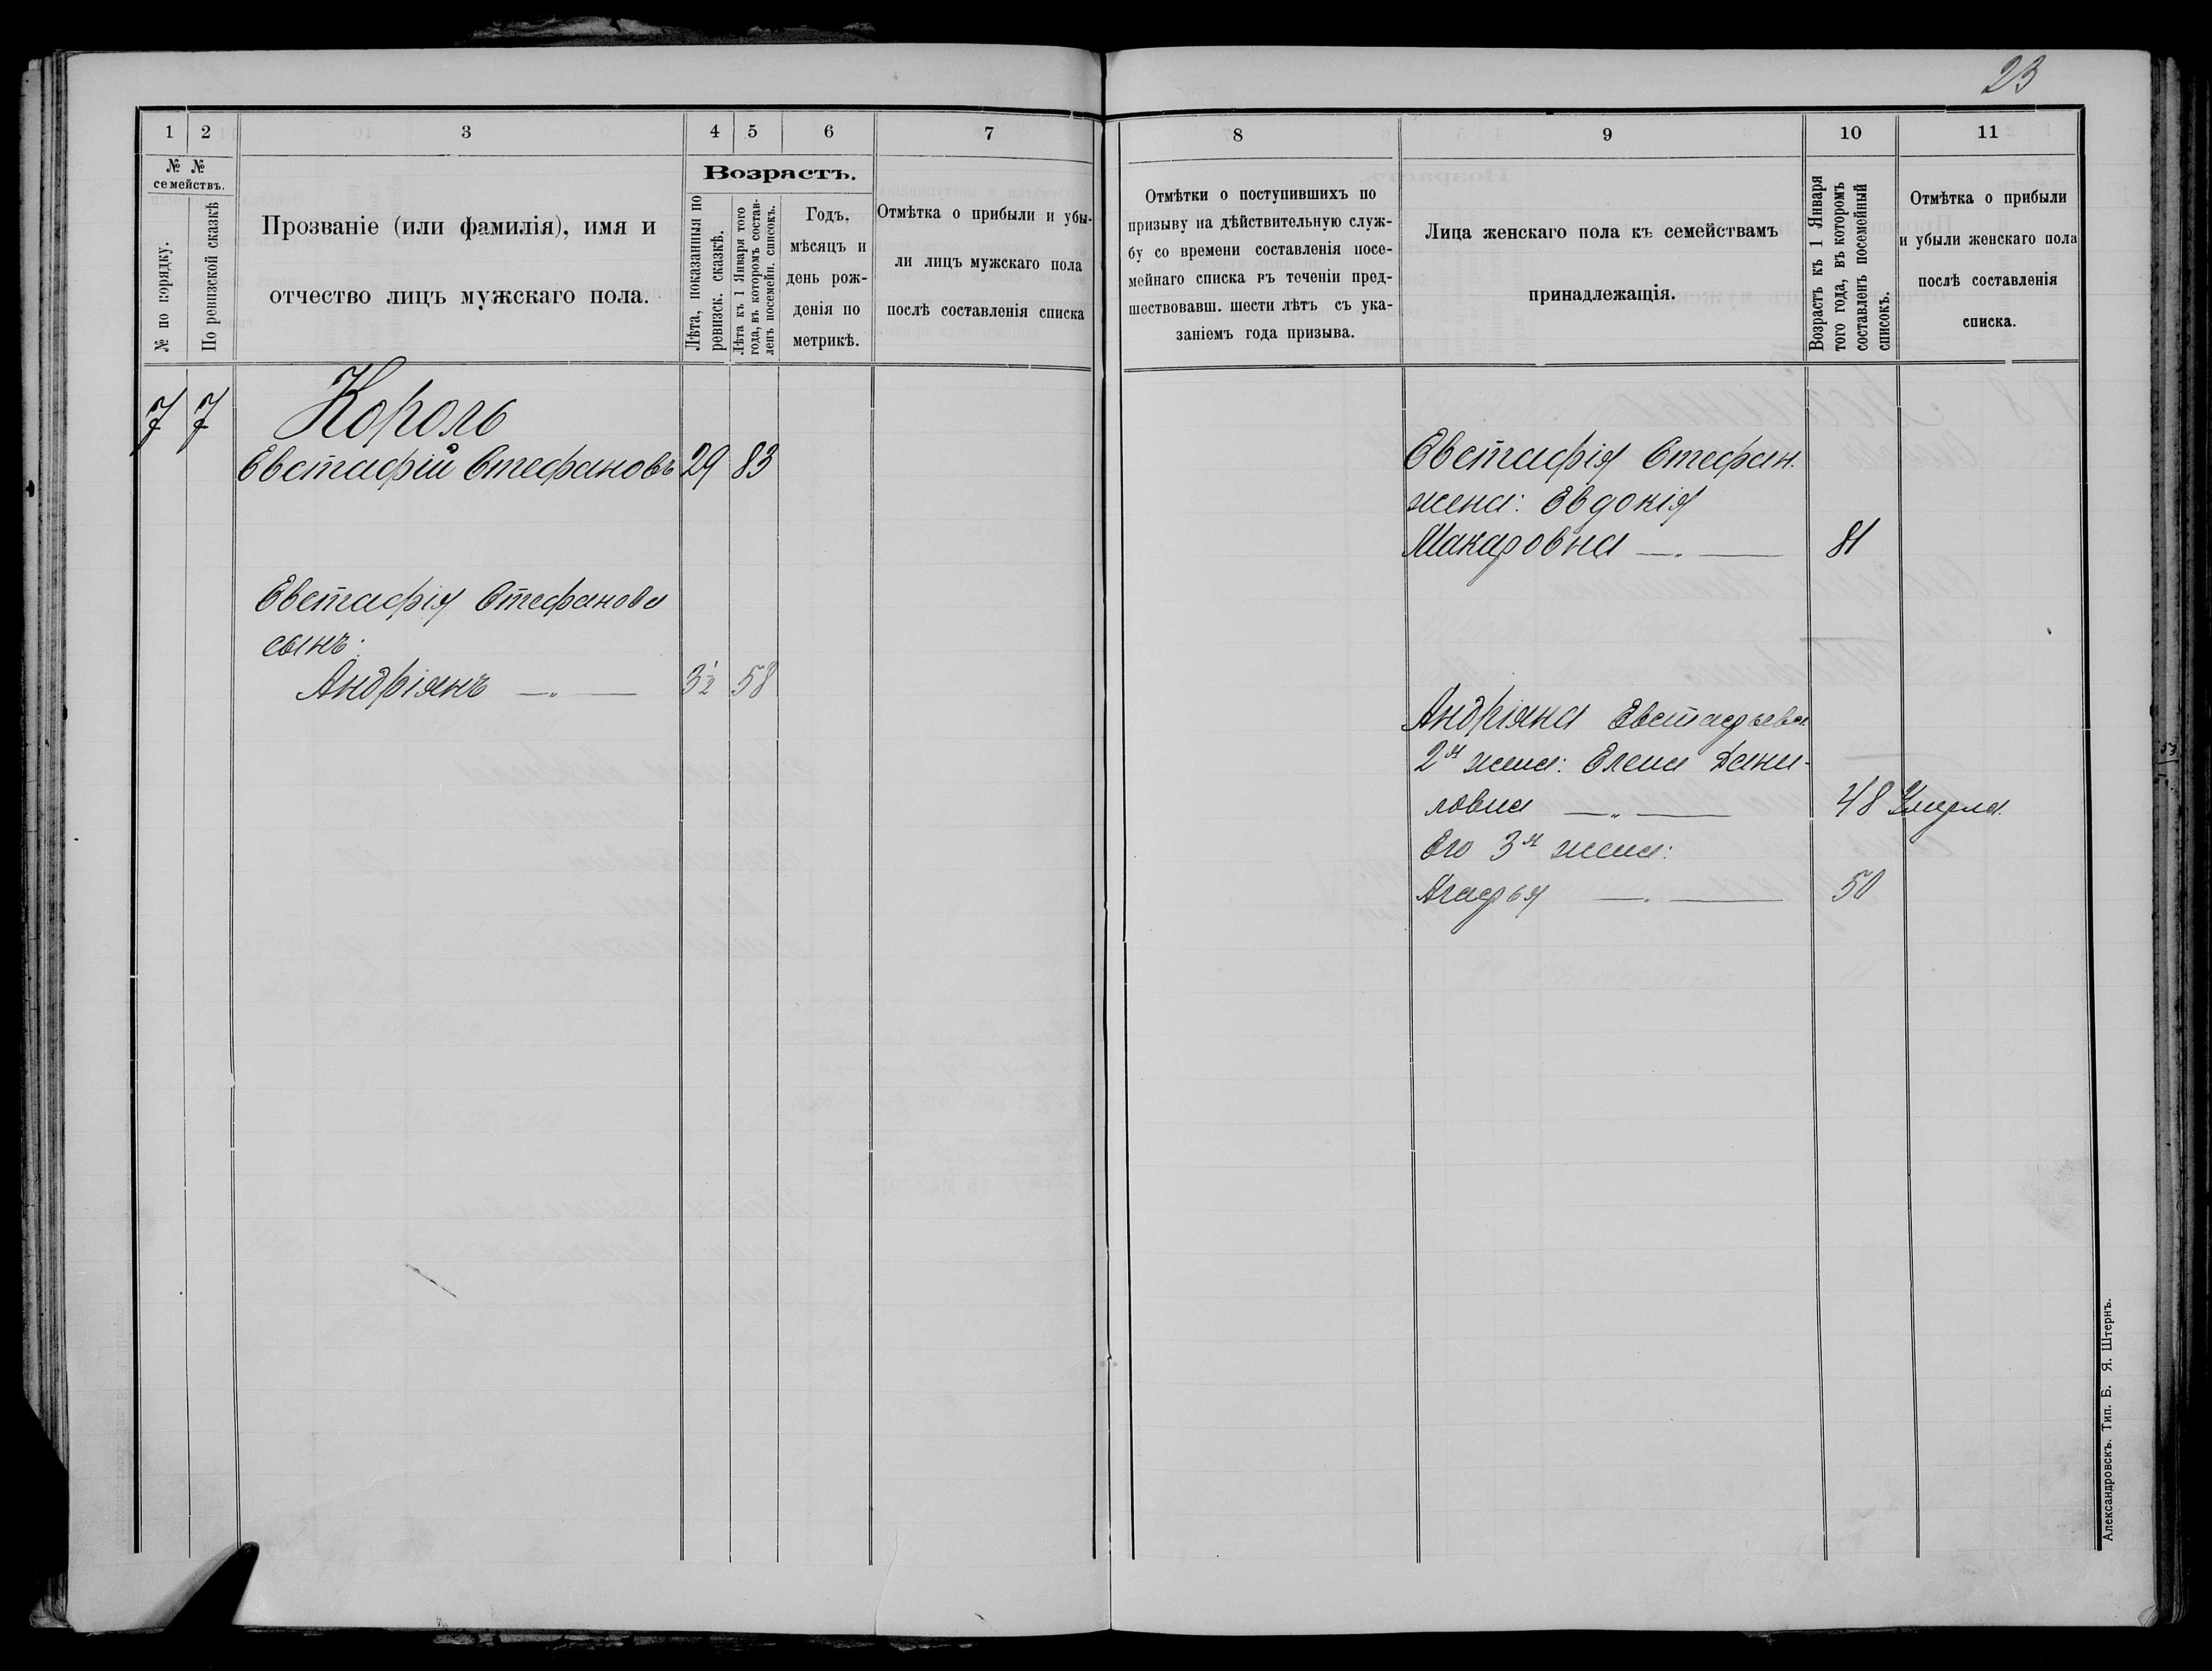 23
1 2 3 4 5 6 7
№ № семействъ.
№ по порядку.
По ревизской сказкѣ
Прозваніе (или фамилія), имя и
отчество лицъ мужскаго пола.
Возрастъ.
Лѣта, показанныя по
ревизск. сказкѣ.
Лѣта къ 1 Января того
года, въ которомъ состав-
ленъ посемейн. списокъ.
Годъ,
мѣсяцъ и
день рож-
денія по
метрикѣ.
Отмѣтка о прибыли и убы-
ли лицъ мужскаго пола
послѣ составленія списка
7 7 Король
Евстафій Стефановъ 29 83
Евстафія Стефанова
сынъ:
Андріянъ — „ — 3½ 58
8 9 10 11
Отмѣтки о поступившихъ по
призыву на дѣйствительную служ-
бу со времени составленія посе-
мейнаго списка въ теченіи пред-
шествовавш. шести лѣтъ съ ука-
заніемъ года призыва.
Лица женскаго пола къ семействамъ
принадлежащія.
Возрастъ къ 1 Января
того года, въ которомъ
составленъ посемейный
списокъ.
Отмѣтка о прибыли
и убыли женскаго пола
послѣ составленія
списка.
Евстафія Стефан.
жена: Евдокія
Макаровна — „ — 81
Андріяна Евстафьева
2я жена: Елена Дани-
ловна — „ — 48 Умерла.
Его 3я жена:
Агафья — „ — 50
Александровскъ. Тип. Б. Я. Штернъ.